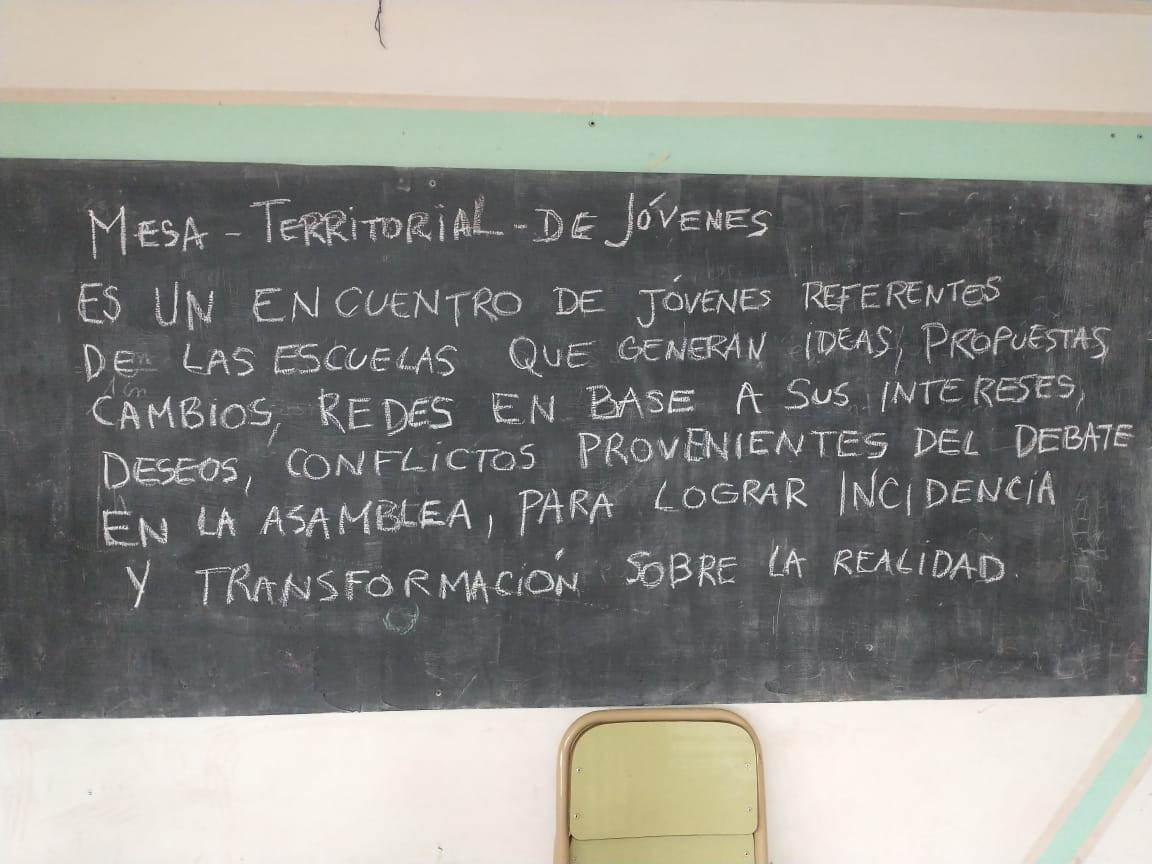 MESA - TERRITORIAL - DE JÓVENES
ES UN ENCUENTRO DE JÓVENES REFERENTES
DE LAS ESCUELAS QUE GENERAN IDEAS, PROPUESTAS
CAMBIOS, REDES EN BASE A SUS INTERESES,
DESEOS, CONFLICTOS PROVENIENTES DEL DEBATE
EN LA ASAMBLEA, PARA LOGRAR INCIDENCIA
Y TRANSFORMACIÓN SOBRE LA REALIDAD.